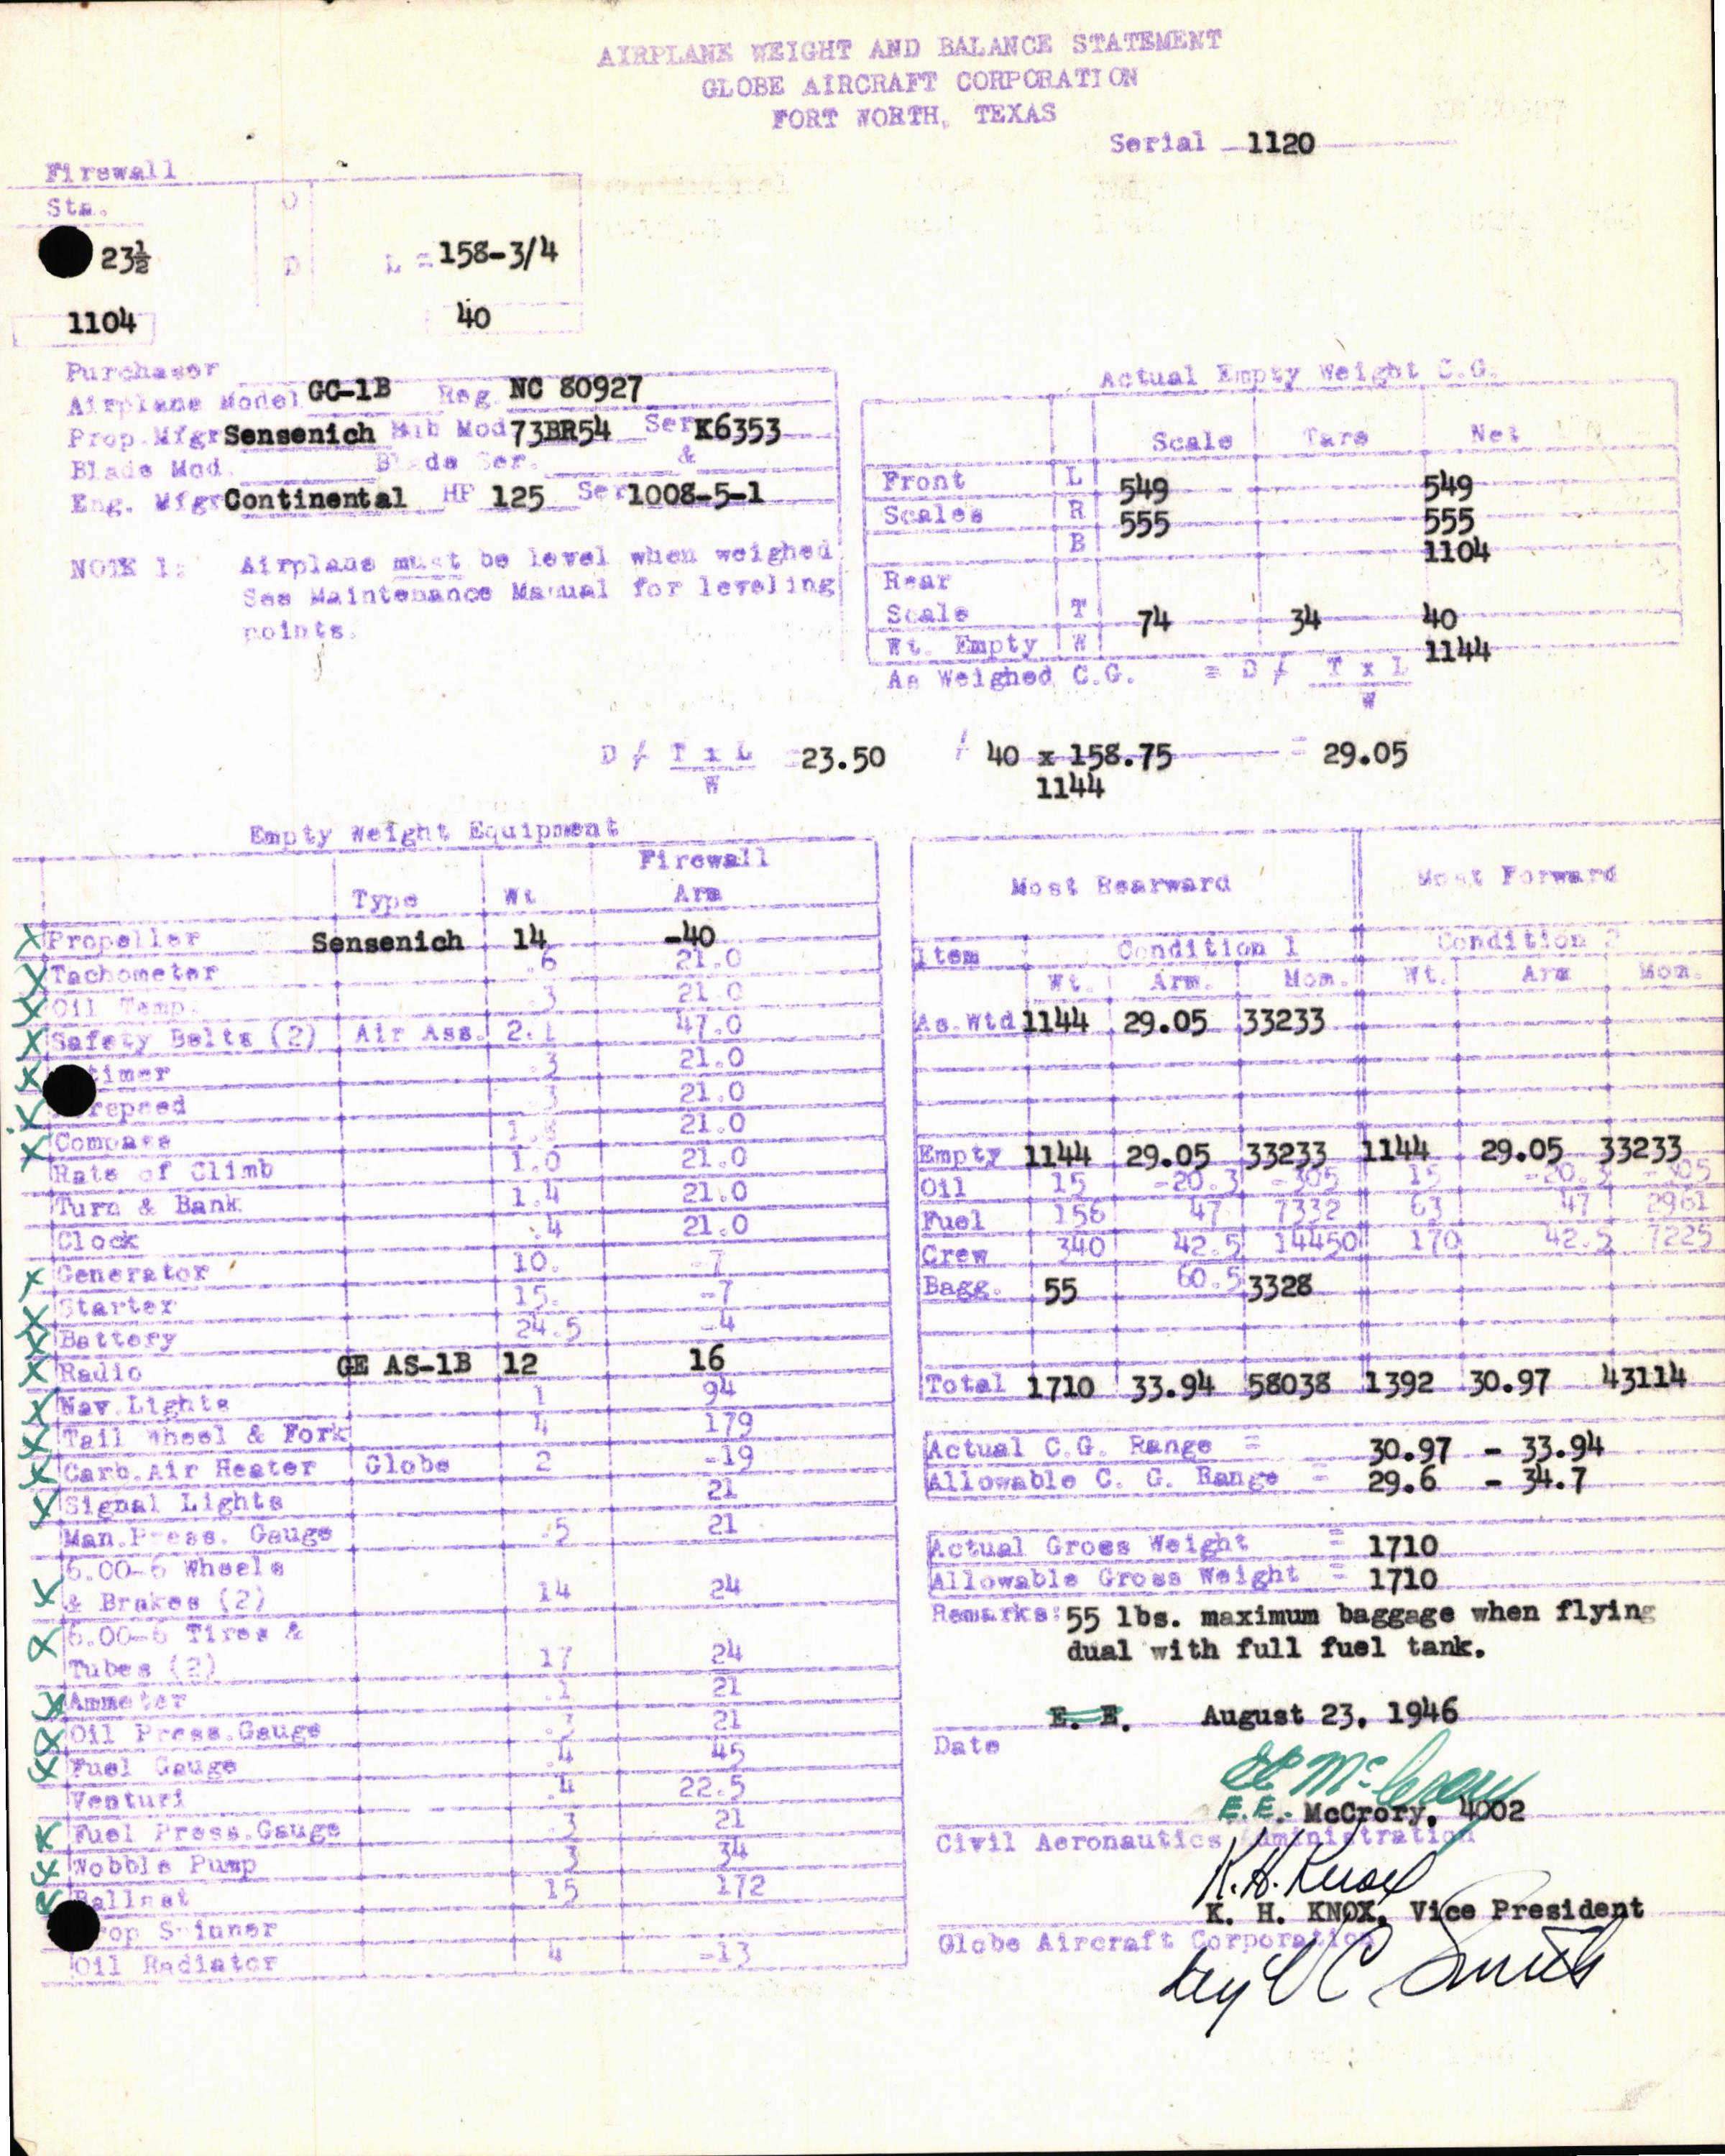 AIRPLANE WEIGHT AND BALANCE STATEMENT
GLOBE AIRCRAFT CORPORATION
FORT WORTH, TEXAS
Serial 1120
Firewall
Sta. O
23½ D L = 158-3/4
1104 40
Purchaser
Airplane Model GC-1B Reg. NC 80927
Prop.Mfgr Sensenich Hub Mod 73BR54 Ser K6353
Blade Mod. Blade Ser. &
Eng. Mfgr Continental HP 125 Ser 1008-5-1
NOTE 1: Airplane must be level when weighed
See Maintenance Manual for leveling
points.
Actual Empty Weight C.G.
Scale Tare Net
Front L 549 549
Scales R 555 555
B 1104
Rear
Scale T 74 34 40
Wt. Empty W 1144
As Weighed C.G. = D / T x L
W
D / T x L = 23.50 / 40 x 158.75 = 29.05
W 1144
Empty Weight Equipment
Type Wt Firewall Arm
Propeller Sensenich 14 -40
Tachometer .6 21.0
Oil Temp. .3 21.0
Safety Belts (2) Air Ass. 2.1 47.0
timer .3 21.0
rspeed .3 21.0
Compass 21.0
Rate of Climb 1.0 21.0
Turn & Bank 1.4 21.0
Clock .4 21.0
Generator 10. -7
Starter 15. -7
Battery 24.5 -4
Radio GE AS-1B 12 16
Nav.Lights 1 94
Tail Wheel & Fork 4 179
Carb.Air Heater Globe 2 -19
Signal Lights 21
Man.Press. Gauge .5 21
6.00-6 Wheels
& Brakes (2) 14 24
6.00-6 Tires &
Tubes (2) 17 24
Ammeter .1 21
Oil Press.Gauge 21
Fuel Gauge .4 45
Venturi .4 22.5
Fuel Press.Gauge .3 21
Wobble Pump 3 34
Ballast 15 172
rop Spinner
Oil Radiator 4 -13
Most Rearward Most Forward
Item Condition 1 Condition 2
Wt. Arm. Mom. Wt. Arm Mom.
As Wtd 1144 29.05 33233
Empty 1144 29.05 33233 1144 29.05 33233
Oil 15 -20.3 -305 15 -20.3 -305
Fuel 156 47 7332 63 47 2961
Crew 340 42.5 14450 170 42.5 7225
Bagg. 55 60.5 3328
Total 1710 33.94 58038 1392 30.97 43114
Actual C.G. Range = 30.97 - 33.94
Allowable C. G. Range = 29.6 - 34.7
Actual Gross Weight = 1710
Allowable Gross Weight = 1710
Remarks: 55 lbs. maximum baggage when flying
dual with full fuel tank.
E. E. August 23, 1946
Date
EE McCrory
E.E. McCrory, 4002
Civil Aeronautics Administration
K.H. Knox
K. H. KNOX, Vice President
Globe Aircraft Corporation
by C Smith